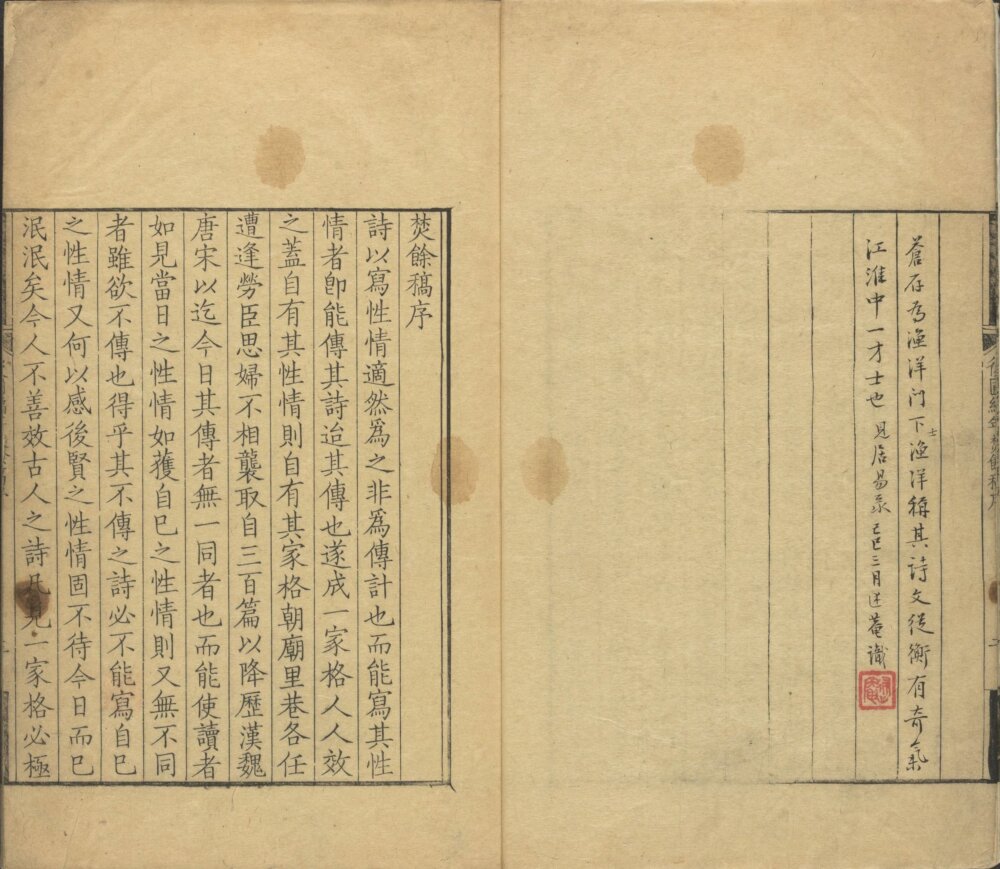 蒼存為漁洋門下士漁洋稱其詩文從衡有奇氣
江淮中一才士也 見居易彔 己巳三月述菴識
焚餘稿序
詩以寫性情適然爲之非爲傳計也而能寫其性
情者卽能傳其詩迨其傳也遂成一家格人人效
之蓋自有其性情則自有其家格朝廟里巷各任
遭逢勞臣思婦不相襲取自三百篇以降歷漢魏
唐宋以迄今日其傳者無一同者也而能使讀者
如見當日之性情如獲自巳之性情則又無不同
者雖欲不傳也得乎其不傳之詩必不能寫自巳
之性情又何以感後賢之性情固不待今日而巳
泯泯矣今人不善效古人之詩凡見一家格必極